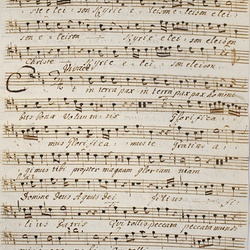 son e lei son Kyrie e lei son e lei son e lei
son e leison Kyrie e lei son eleison
Christe Kyrie e lei son eleison
Vivace
Et in terra pax in terra pax pax homini
bus bonæ voluntatis Glorifica
mus Glorifica muste Gratias a
gimus tibi propter magnam gloriam tuam
Domine Deus Agnus Dei Filius
Qui tollis peccata peccata mundi